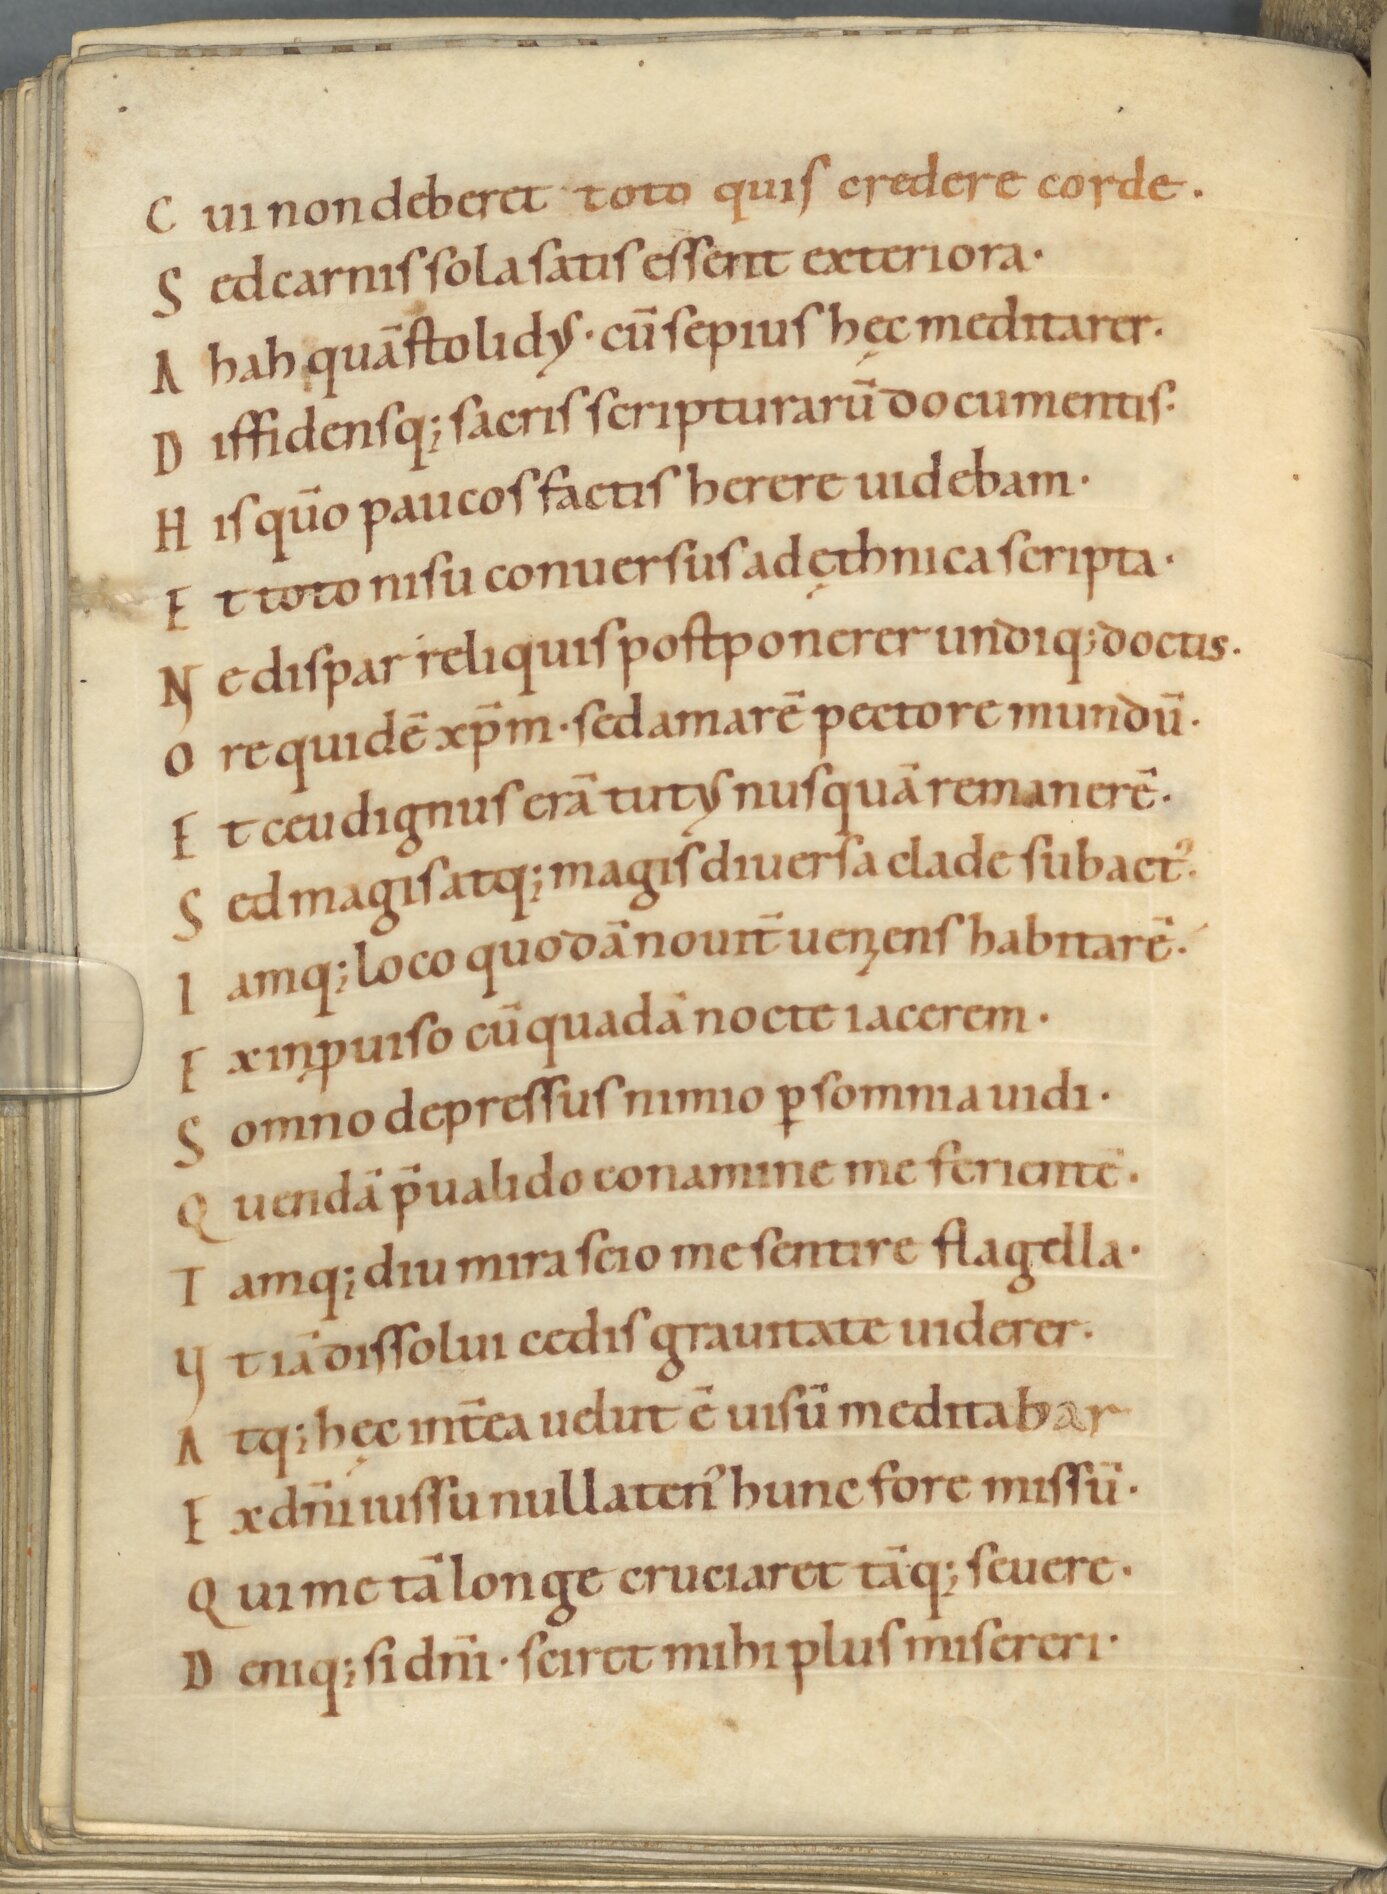 C ui non deberet toto quis credere corde.
S ed carnis sola satis essent exteriora.
A hah quā stolidy. cū sepius hęc meditarer.
D iffidensq; sacris scripturarū documentis.
H is qūo paucos factis herere uidebam.
E t toto nisu conuersus ad ęthnica scripta.
N e dispar reliquis postponerer undiq; doctis.
O re quidē xp̄m. sed amarē pectore mundū.
E t ceu dignus erā tuty nusquā remanerē.
S ed magis atq; magis diuersa clade subact᾿.
I amq; loco quodā nouit̄ ueniens habitarē.
E x inpuiso cū quadā nocte iacerem.
S omno depressus nimio ꝑ somnia uidi.
Q uendā p̄ualido conamine me ferientē.
T amq; diu mira scio me sentire flagella.
Y t iā dissolui cedis grauitate uiderer.
A tq; hęc int̄ea uelut ē uisū meditabar
E x dn̄i iussu nullaten᾿ hunc fore missū.
Q ui me tā longe cruciaret tāq; seuere.
D eniq; si dn̄i. sciret mihi plus misereri.